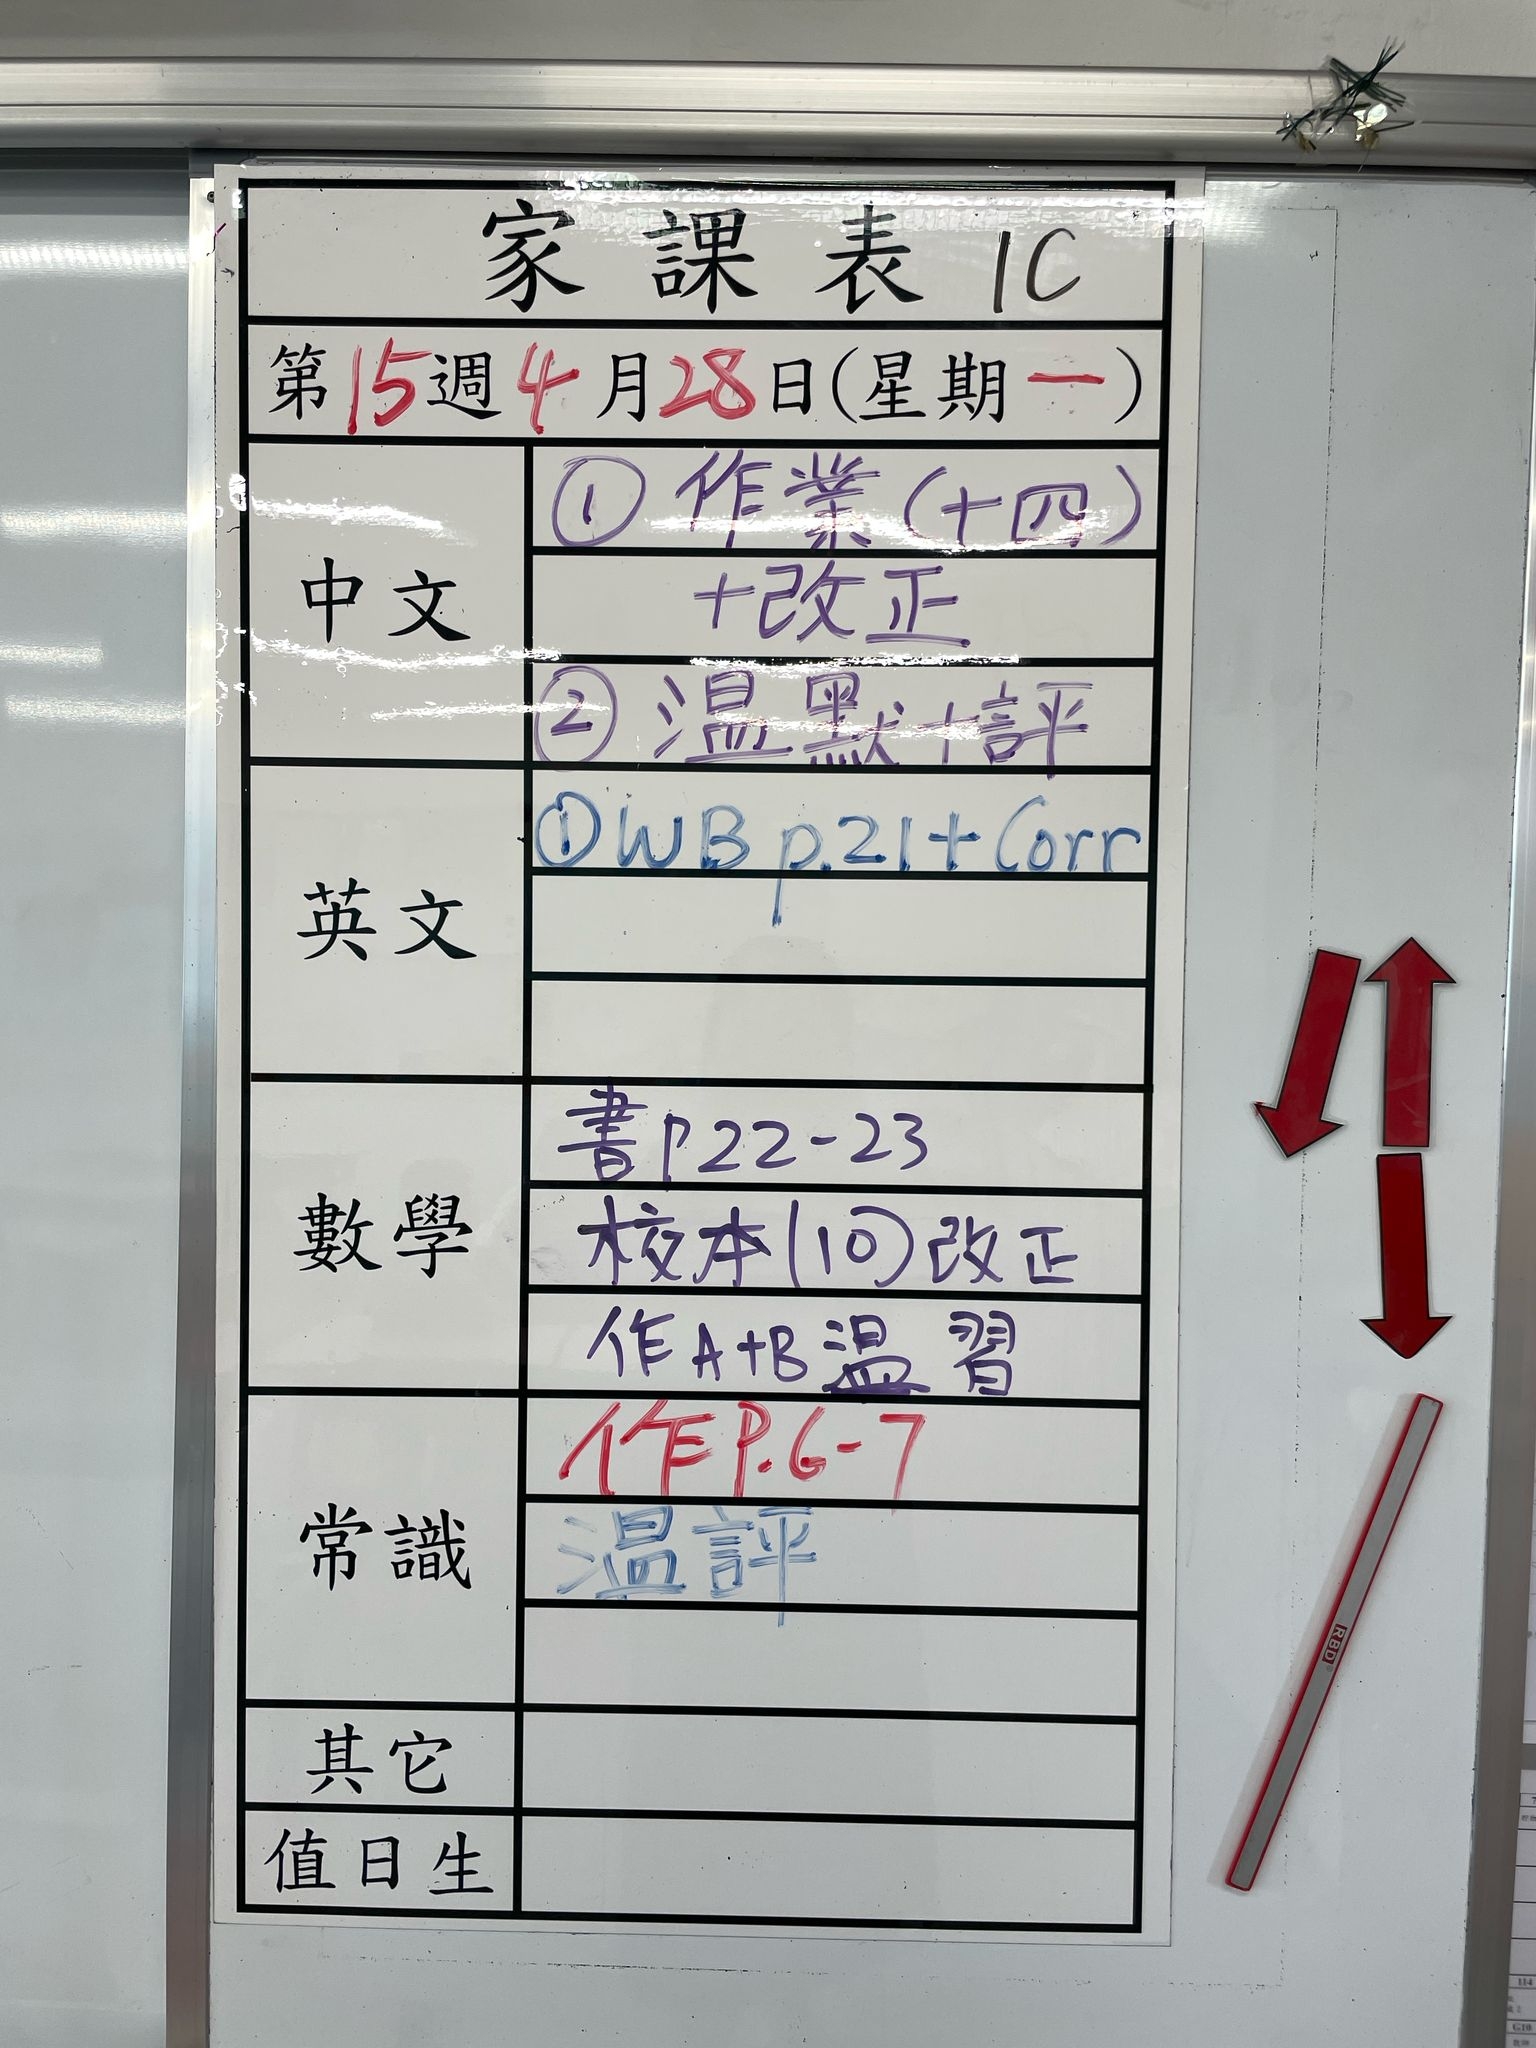 家課表 1C
第15週4月28日(星期一)
中文
① 作業(十四)
+改正
② 温默+評
英文
① WB p.21+Corr
數學
書P22-23
校本(10)改正
作A+B温習
常識
作P.6-7
温評
其它
值日生
RBD
114
G10